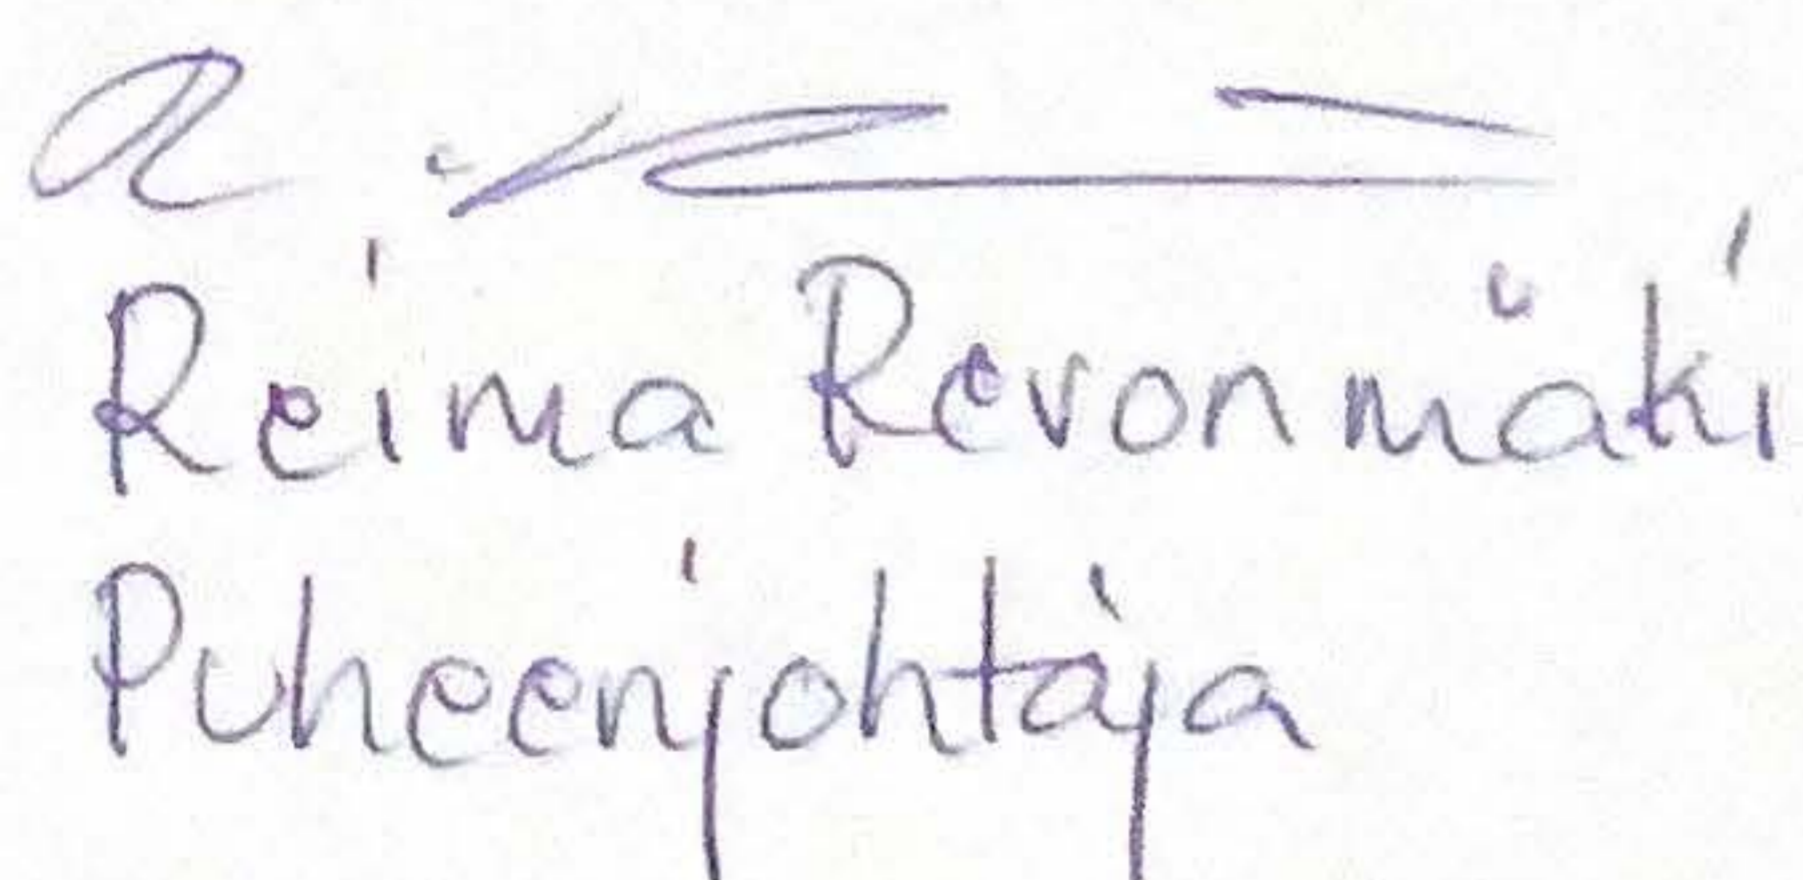 Reima Revonmäki
Puheenjohtaja